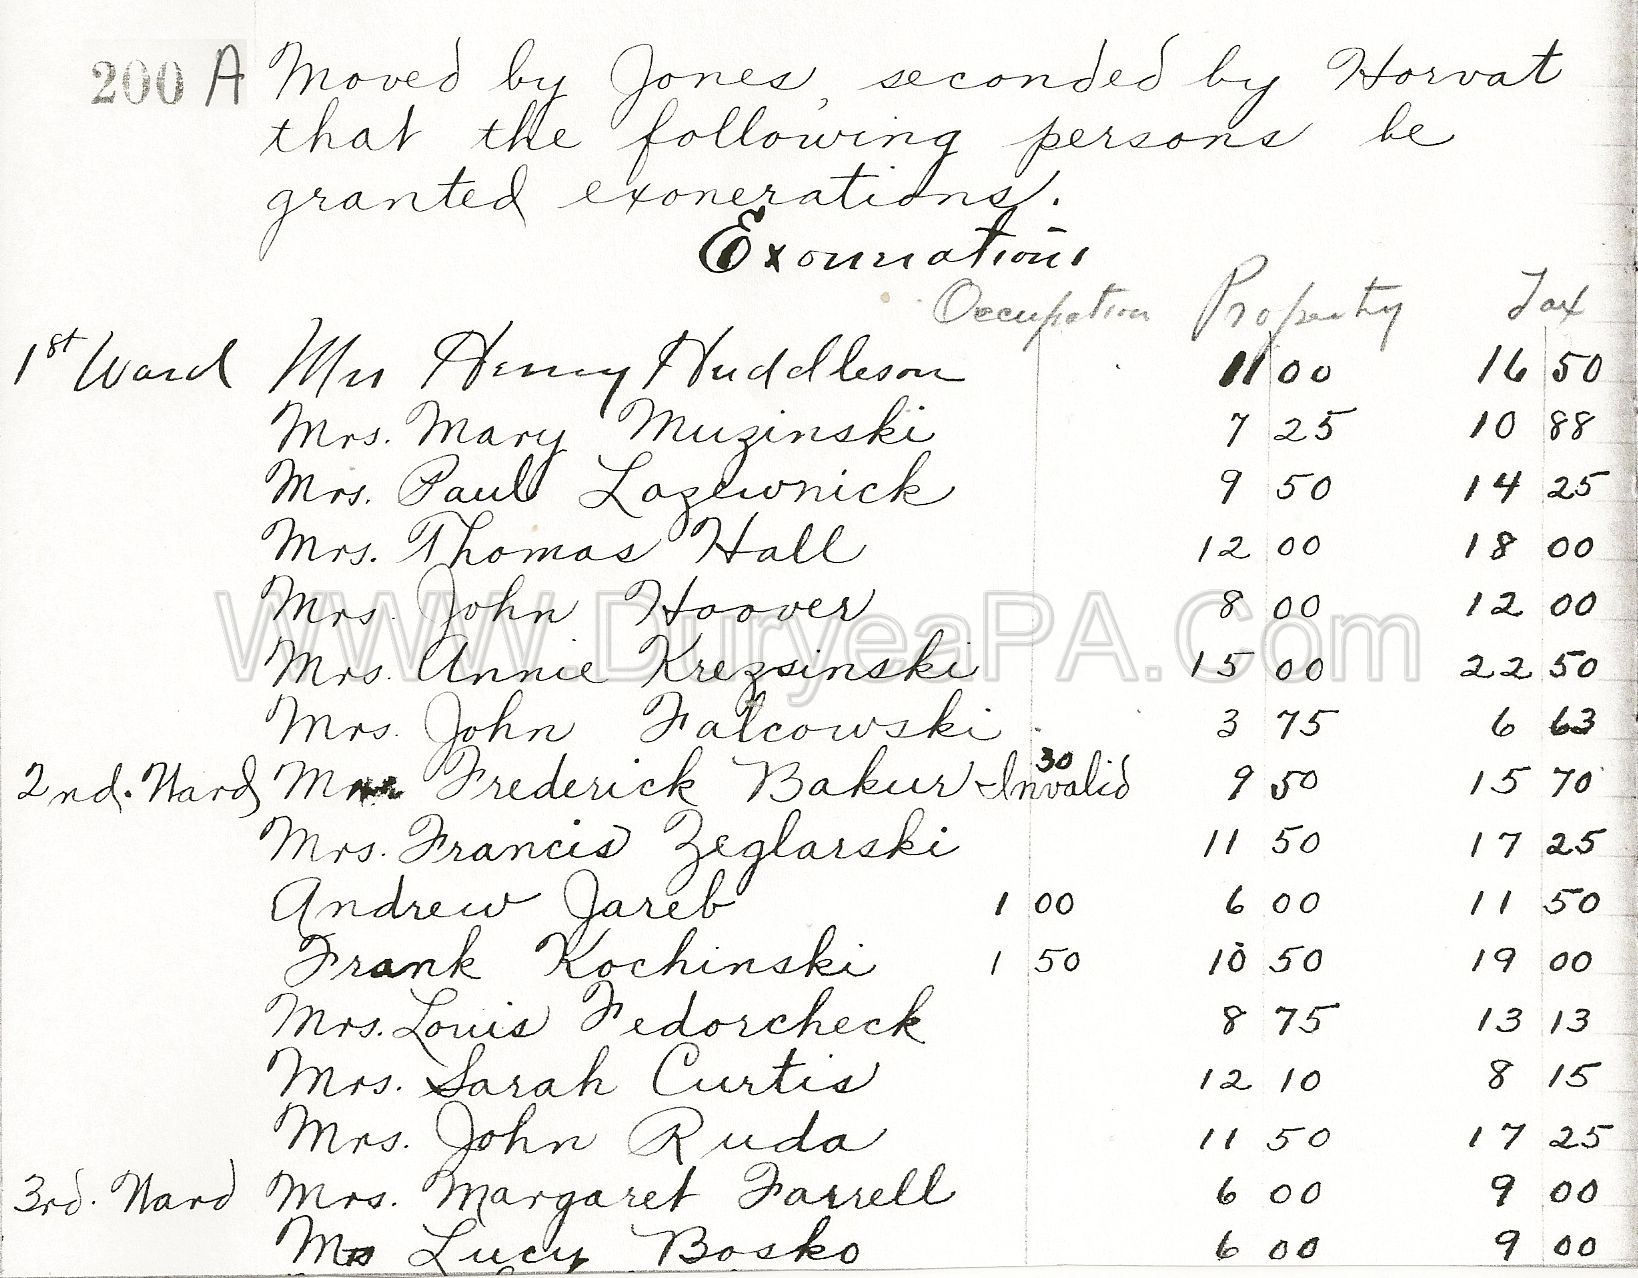 200 A Moved by Jones, seconded by Horvat
that the following persons be
granted exonerations.
Exonerations
Occupation Property Tax
1st Ward Mrs Henry Huddleson 11 00 16 50
Mrs. Mary Muzinski 7 25 10 88
Mrs. Paul Lazewnick 9 50 14 25
Mrs. Thomas Hall 12 00 18 00
Mrs. John Hoover 8 00 12 00
WWW.DuryeaPA.Com
Mrs. Annie Krezsinski 15 00 22 50
Mrs. John Falcowski 3 75 6 63
2nd. Ward Frederick Bakur - Invalid 30 9 50 15 70
Mrs. Francis Zeglarski 11 50 17 25
Andrew Jareb 1 00 6 00 11 50
Frank Kochinski 1 50 10 50 19 00
Mrs. Louis Fedorcheck 8 75 13 13
Mrs. Sarah Curtis 12 10 8 15
Mrs. John Ruda 11 50 17 25
3rd. Ward Mrs. Margaret Farrell 6 00 9 00
Mrs Lucy Bosko 6 00 9 00